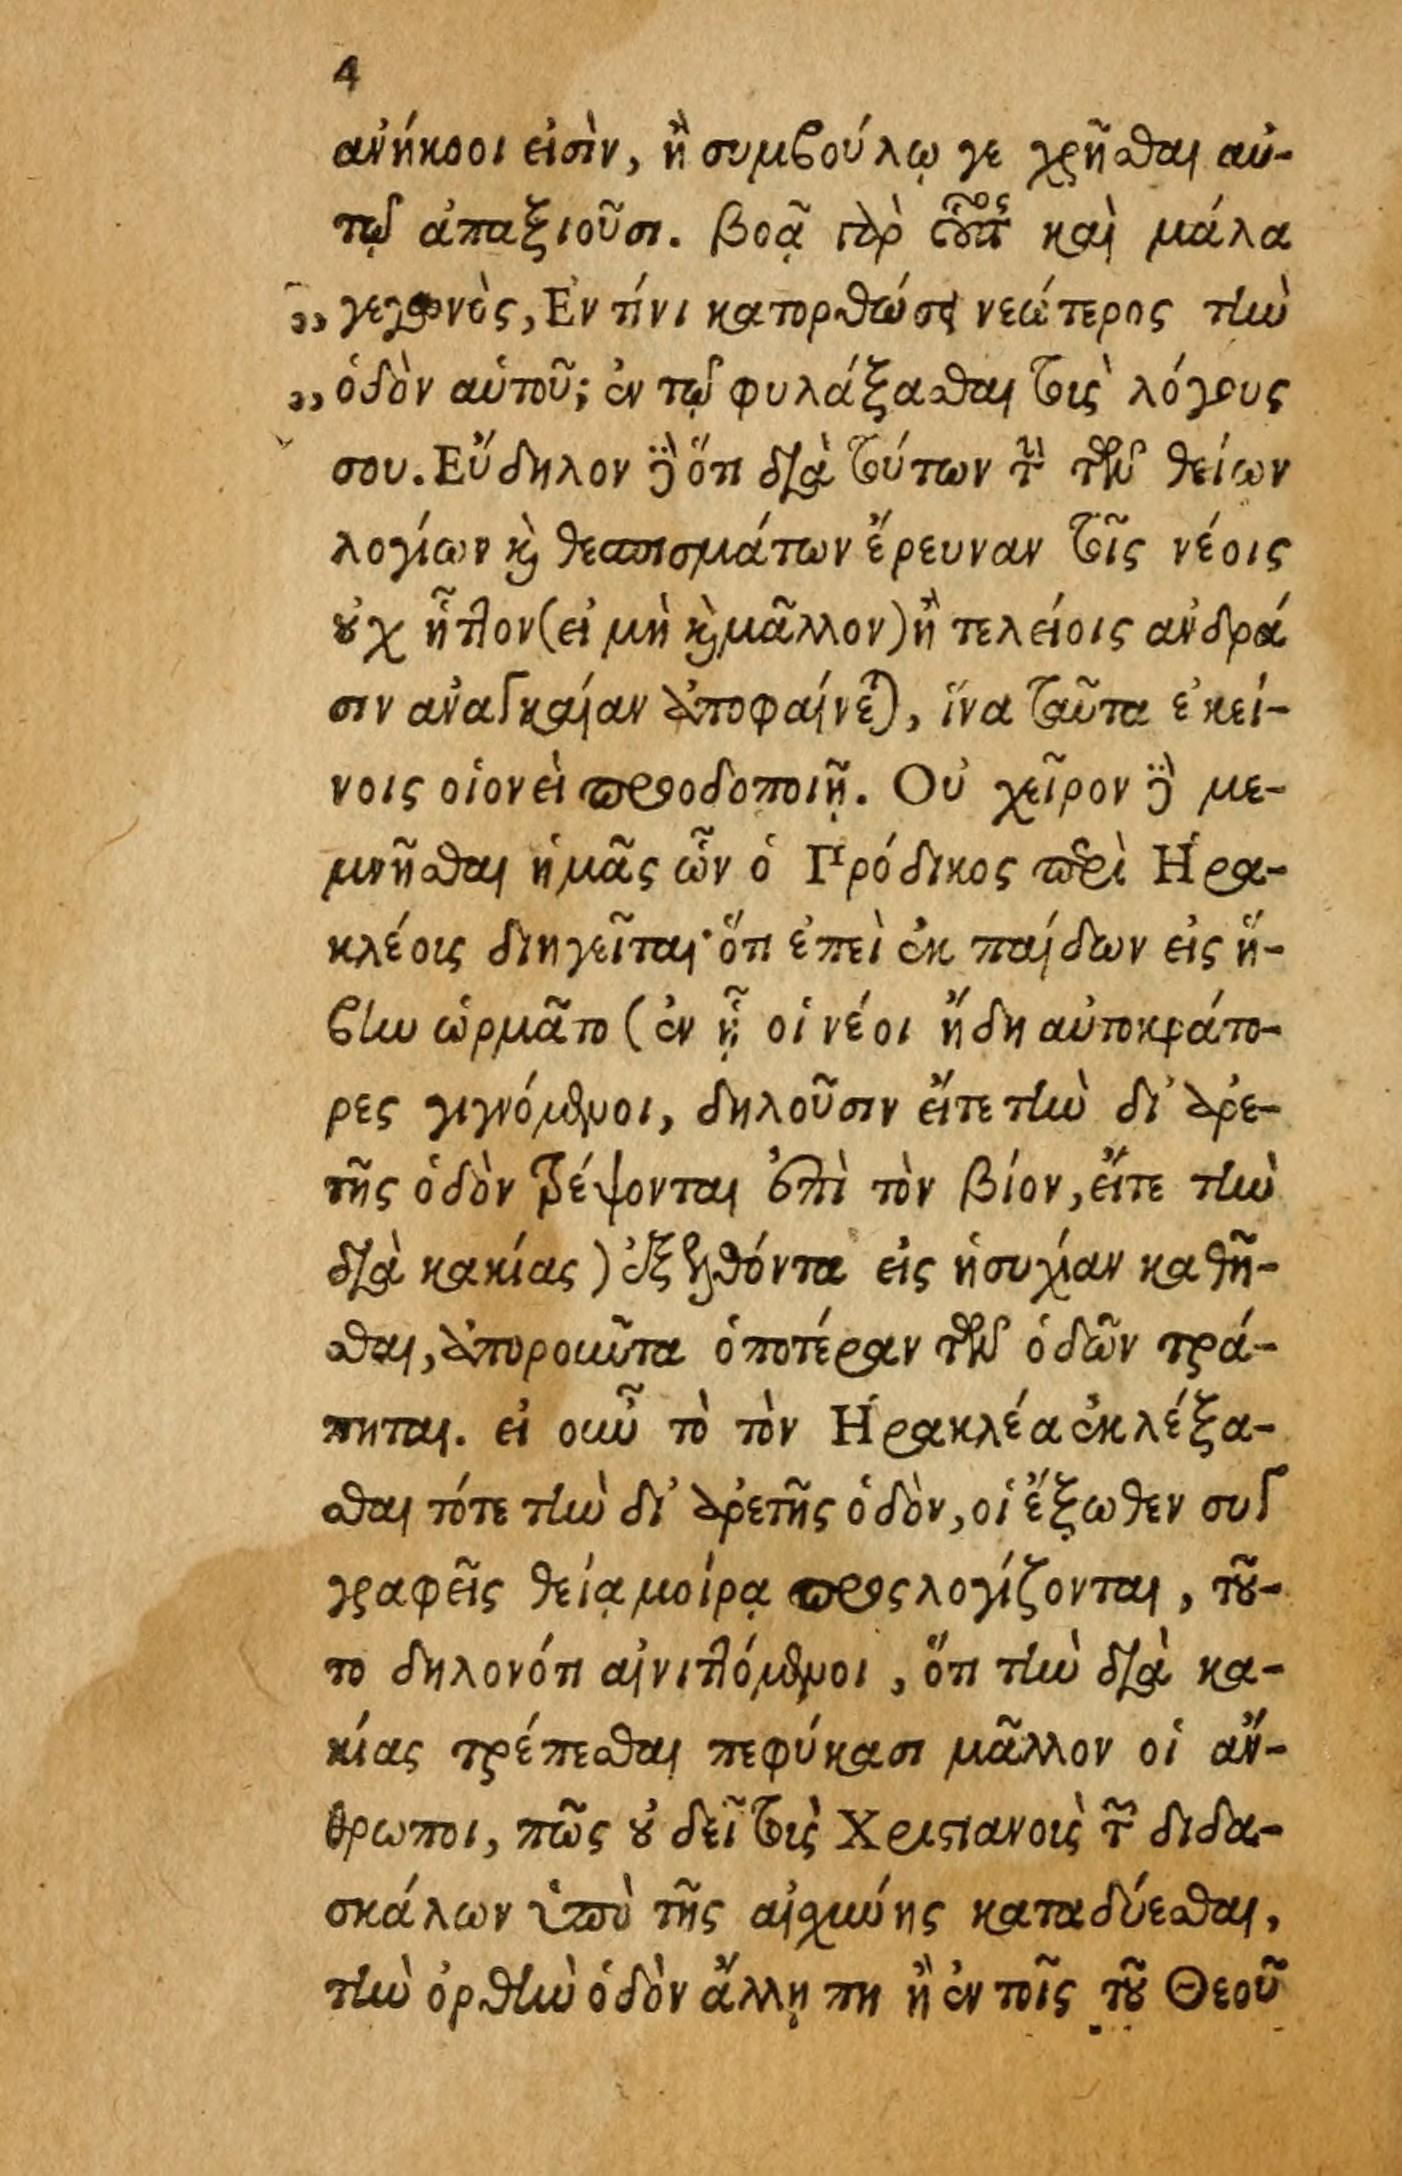 4
ἀνήκοοι εἰσὶν, ἢ συμβούλῳ γε χρῆσθαι αὐ-
τῷ ἀπαξιοῦσι. βοᾷ γὰρ οὗτος καὶ μάλα
„ γεγωνὸς, Ἐν τίνι κατορθώσει νεώτερος τὴν
„ ὁδὸν αὑτοῦ; ἐν τῷ φυλάξασθαι τοὺς λόγους
σου. Εὔδηλον δὲ ὅτι διὰ τούτων τὴν τῶν θείων
λογίων καὶ θεσπισμάτων ἔρευναν τοῖς νέοις
οὐχ ἧττον (εἰ μὴ καὶ μᾶλλον) ἢ τελείοις ἀνδρά
σιν ἀναγκαίαν ἀποφαίνεται, ἵνα ταῦτα ἐκεί-
νοις οἱονεὶ προοδοποιῇ. Οὐ χεῖρον δὲ με-
μνῆσθαι ἡμᾶς ὧν ὁ Πρόδικος περὶ Ἡρα-
κλέους διηγεῖται· ὅτι ἐπεὶ ἐκ παίδων εἰς ἥ-
βην ὡρμᾶτο (ἐν ᾗ οἱ νέοι ἤδη αὐτοκράτο-
ρες γιγνόμενοι, δηλοῦσιν εἴτε τὴν δι' ἀρε-
τῆς ὁδὸν τρέψονται ἐπὶ τὸν βίον, εἴτε τὴν
διὰ κακίας) ἐξελθόντα εἰς ἡσυχίαν καθῆ-
σθαι, ἀποροῦντα ὁποτέραν τῶν ὁδῶν τρά-
πηται. εἰ οὖν τὸ τὸν Ἡρακλέα ἐκλέξα-
σθαι τότε τὴν δι' ἀρετῆς ὁδὸν, οἱ ἔξωθεν συγ
γραφεῖς θείᾳ μοίρᾳ προςλογίζονται, τοῦ-
το δηλονότι αἰνιττόμενοι, ὅτι τὴν διὰ κα-
κίας τρέπεσθαι πεφύκασι μᾶλλον οἱ ἄν-
θρωποι, πῶς οὐ δεῖ τοὺς Χριστιανοὺς τῶν διδα-
σκάλων ὑπὸ τῆς αἰσχύνης καταδύεσθαι,
τὴν ὀρθὴν ὁδὸν ἄλλῃ πη ἢ ἐν τοῖς τοῦ Θεοῦ